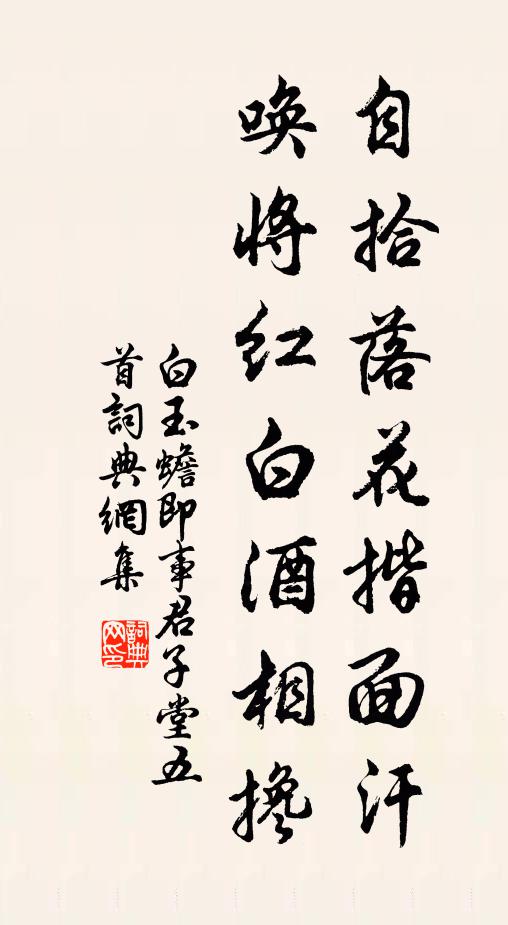 自拾落花揩面汗
喚將紅白酒相攙
白玉蟾即事君子堂五
首詞典網集
詞典
网印